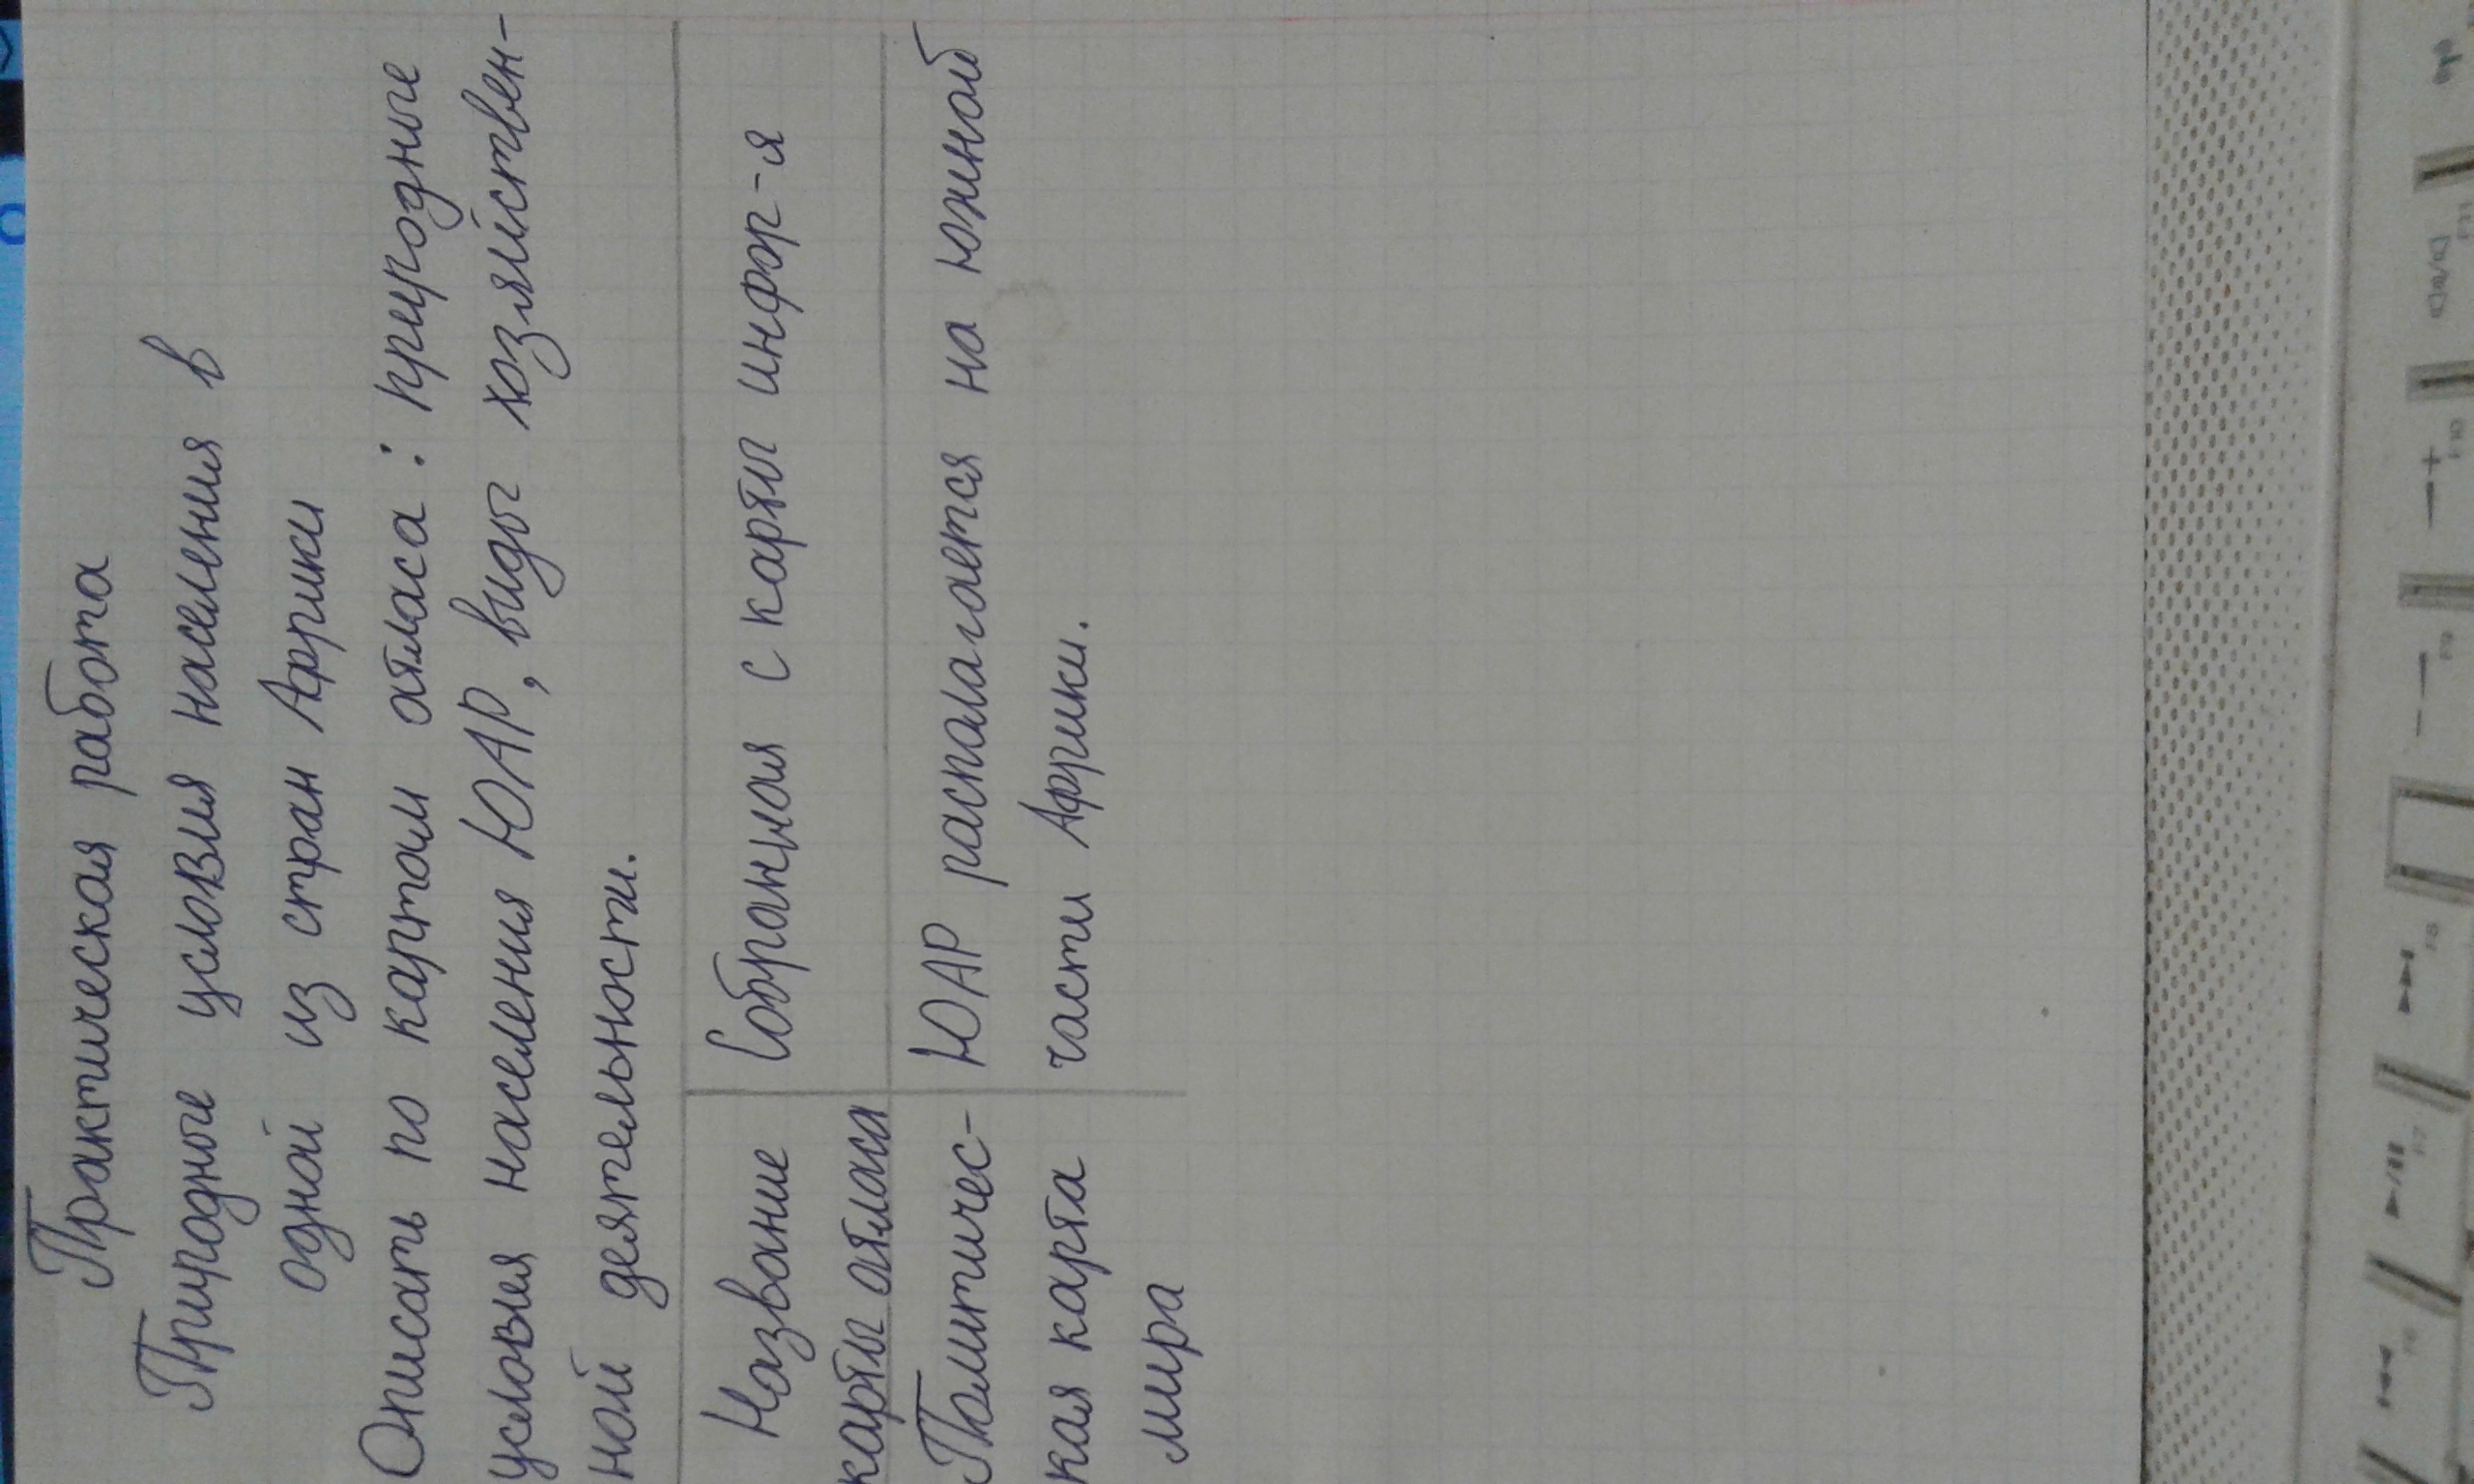 Практическая работа
Природные условия населения в
одной из стран Африки
Описать по картам атласа: природные
условия населения ЮАР, виды хозяйствен-
ной деятельности.
Название
карты атласа
Собранная с карты инфор-я
Политичес-
кая карта
мира
ЮАР располагается на южной
части Африки.